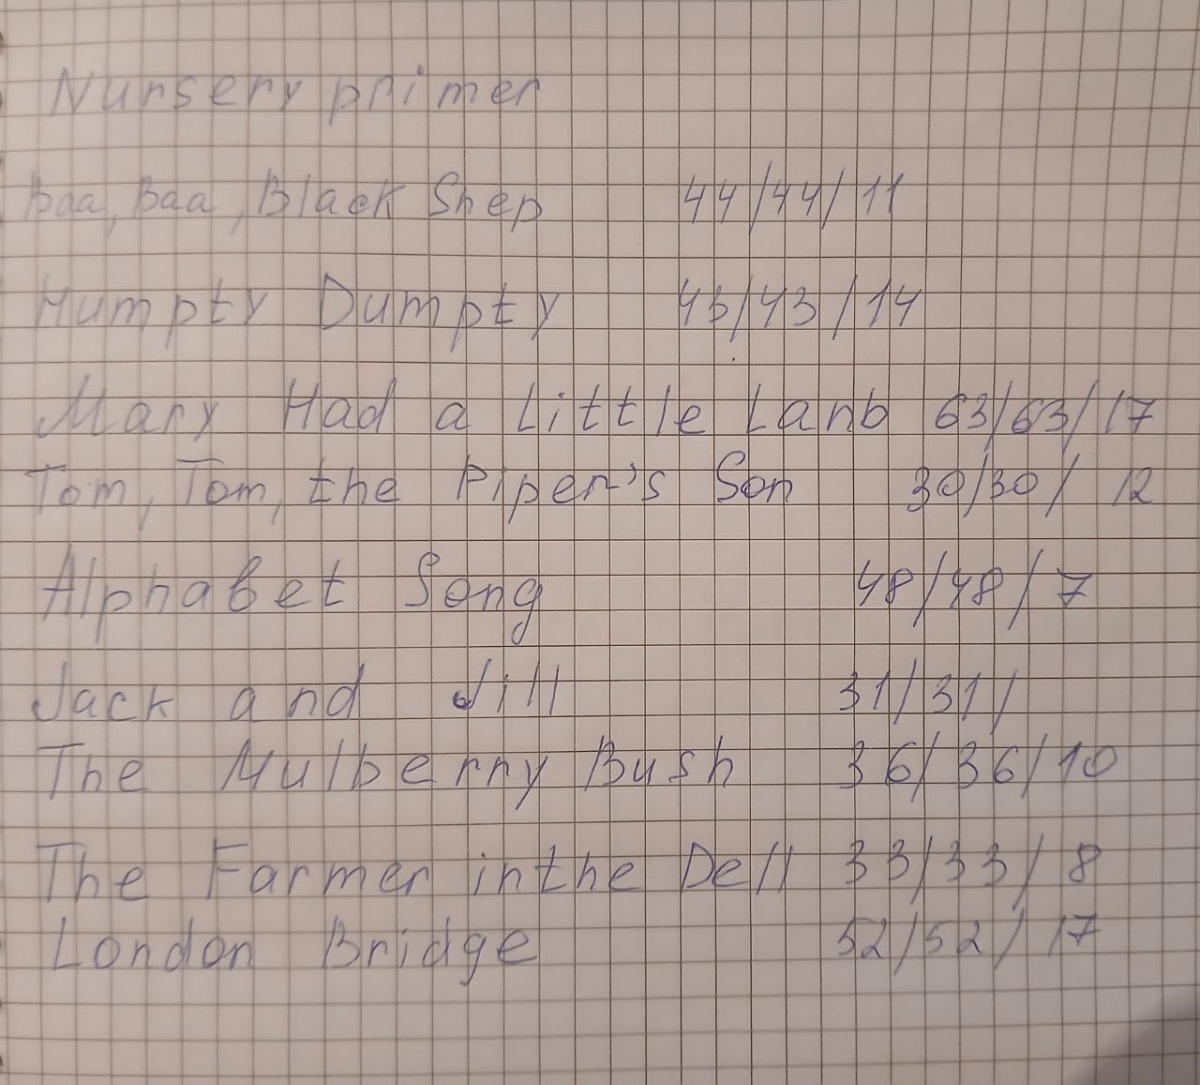 Nursery primer
Baa, Baa, Black Shep 44/44/11
Humpty Dumpty 43/43/14
Mary Had a Little Lanb 63/63/17
Tom, Tom, the Piper's Son 30/30/ 12
Alphabet Song 48/48/7
Jack and Jill 31/31/
The Mulberry Bush 36/36/10
The Farmer inthe Dell 33/33/8
London Bridge 52/52/17